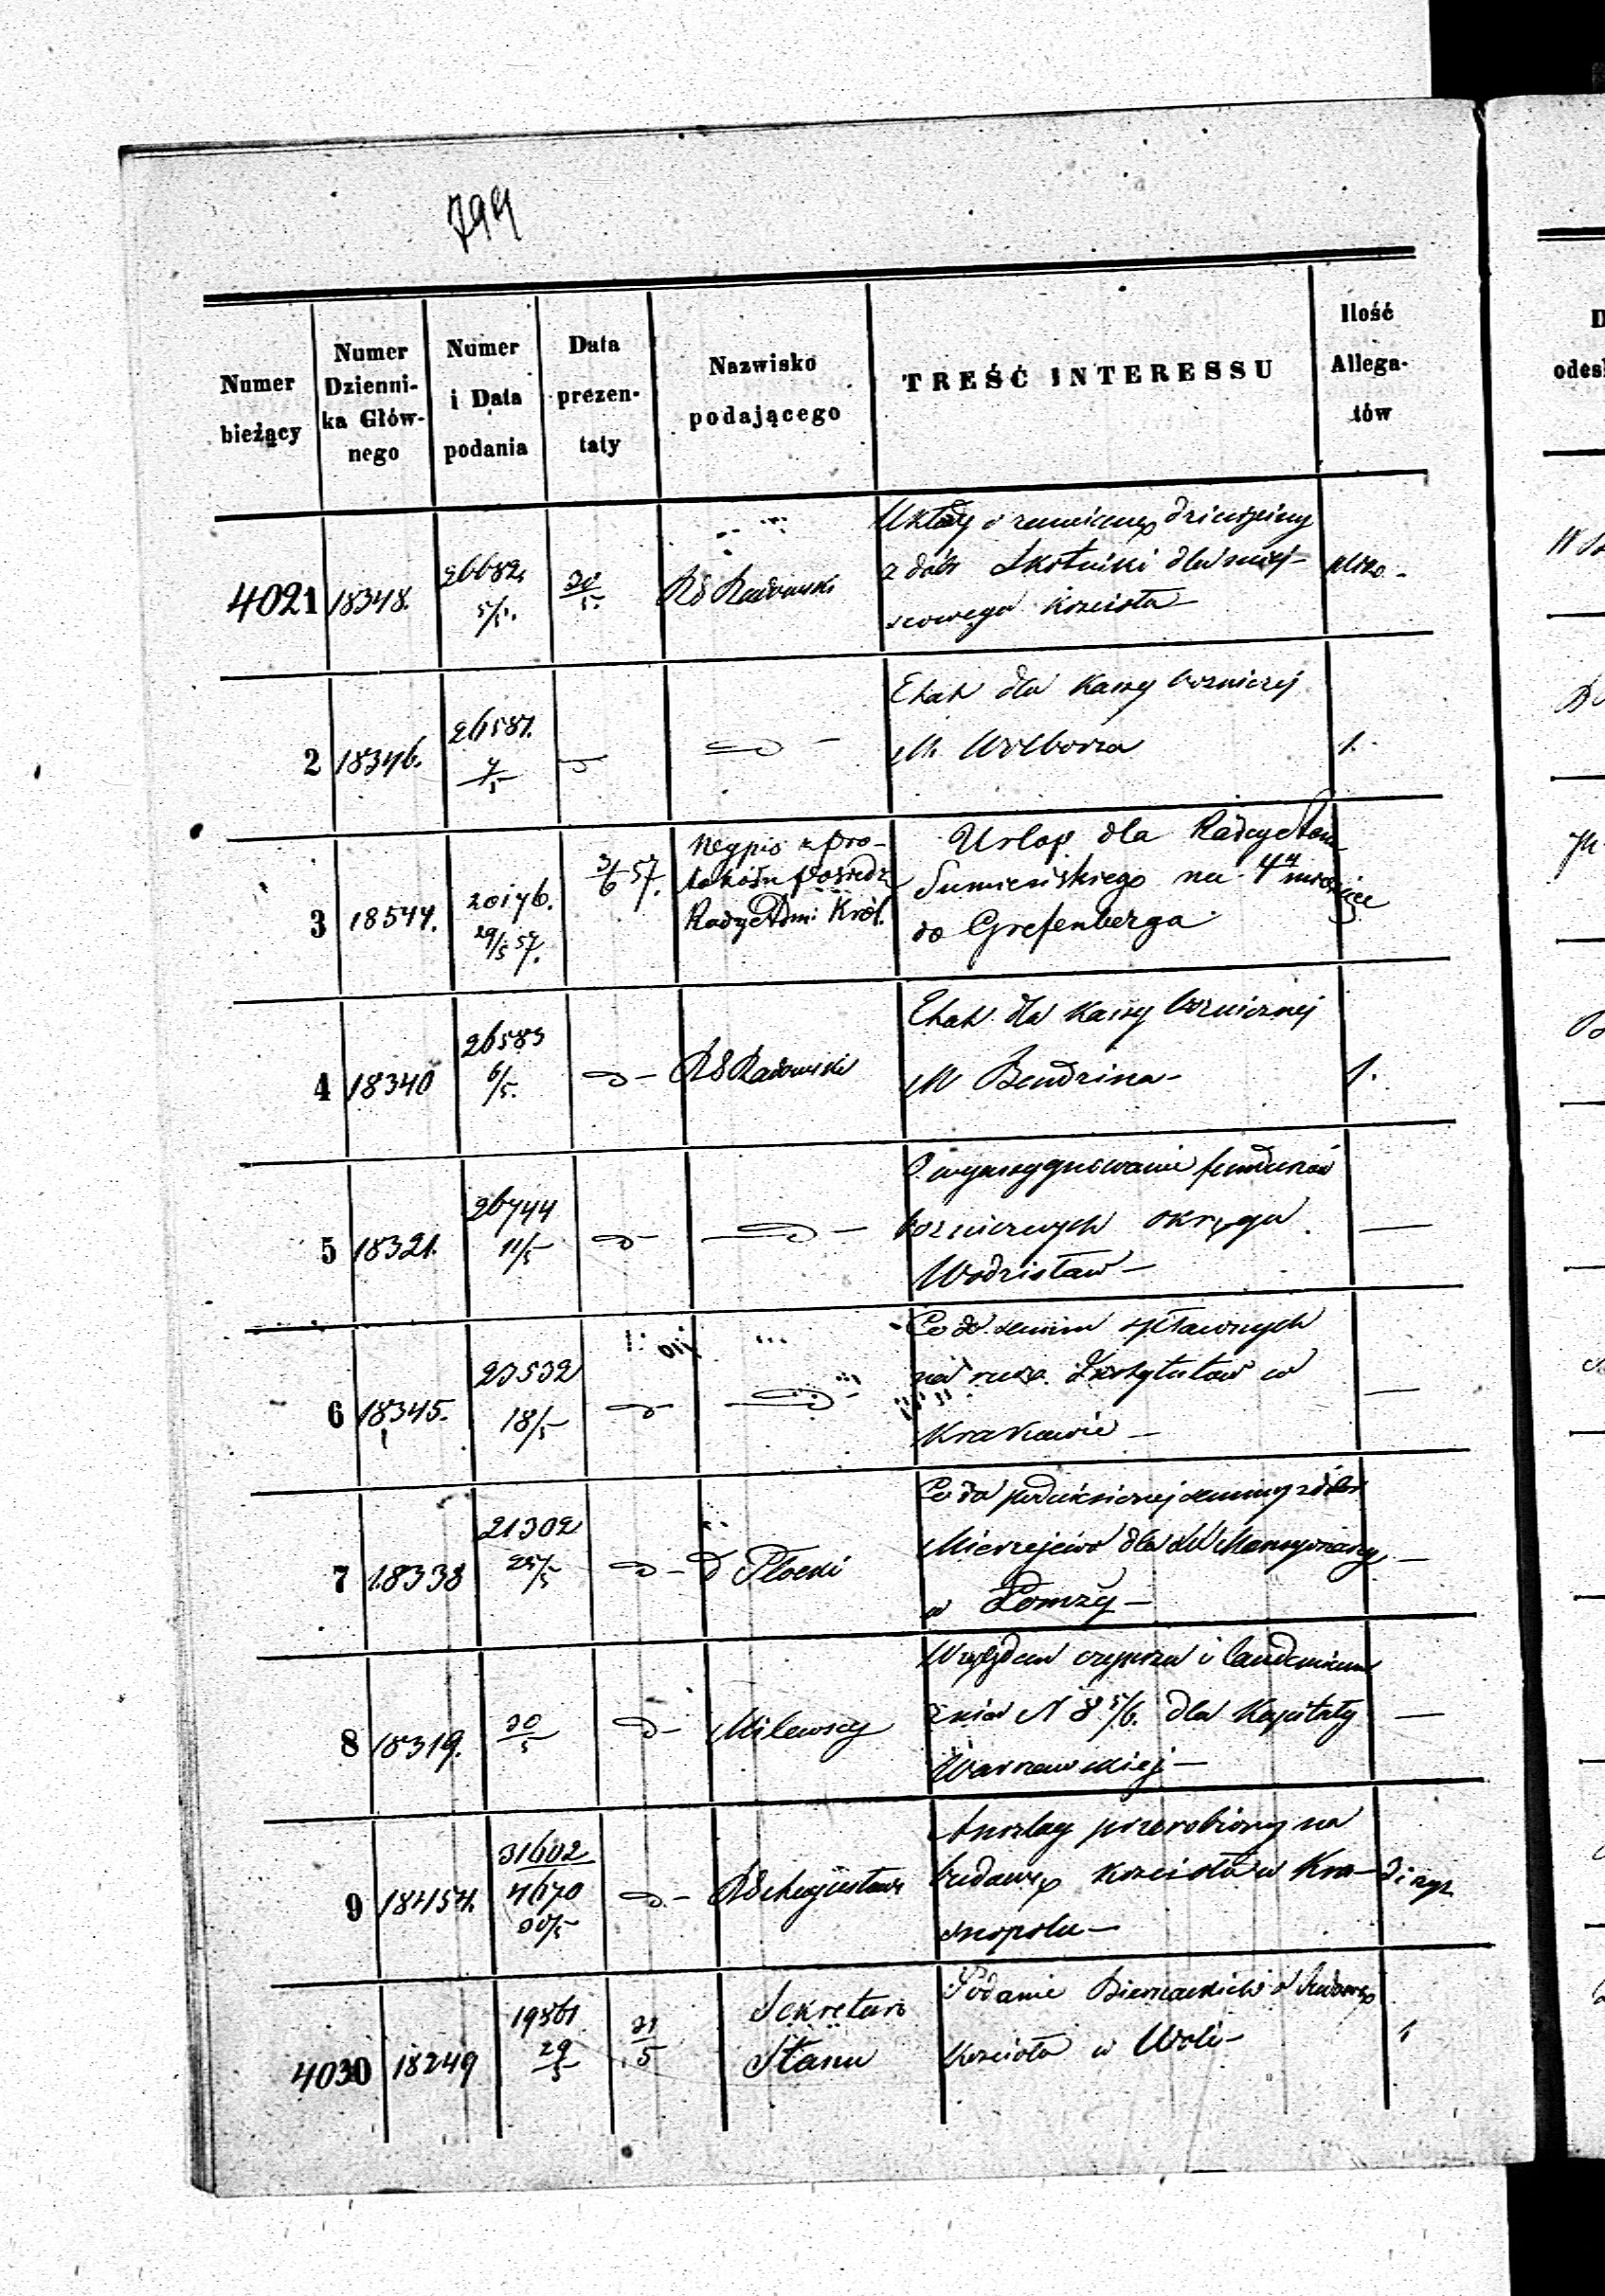 799
Numer bieżący
Numer Dzienni-ka Głów-nego
Numer i Data podania
Data prezen-taty
Nazwisko podającego
TREŚĆ INTERESSU
Ilość Allega-tów
4021 18348. 26682. 5/5. 30/5. RG Radomski
Układy o zamianę dziesięciny
z dóbr Skotniki dla miej-
scowego kościoła
2 18346. 26587. 7/5
Etat dla Kassy bożniczej
M. Wolborza 1.
3 18544. 20176. 29/5 57. 3/6 57.
Wypis z Pro-
tokółu Posiedz
Rady Adm: Król.
Urlop dla Radcy
Sumińskiego na 4
do Grefenberga
4 18340 26583 6/5. RG Radomski
Etat dla Kassy bożnicznej
M Bendzina 1.
5 18321. 26744 11/5
O wyassygnowanie funduszów
bożniczych okręgu
Wodzisław
6 18345. 23532 18/5
Co do summ spławnych
na rzecz Instytutów w
Krakowie
7 18338 21302 25/5 Płocki
Co do summy z dóbr
Mierzejewo dla
w Łomży
8 18319. 30/5 Milewscy
Względem czynszu i laudemium
dla Kapituły
Warszawskiej
9 18454. 31602 4670 30/5 RG Augustows
Anszlag przerobiony na
budowę kościoła w Kra-
snopolu
4030 18249 19861 29/5 31/5
Sekretarz
Stanu
Podanie Biernackich o budowę
kościoła w Woli 1